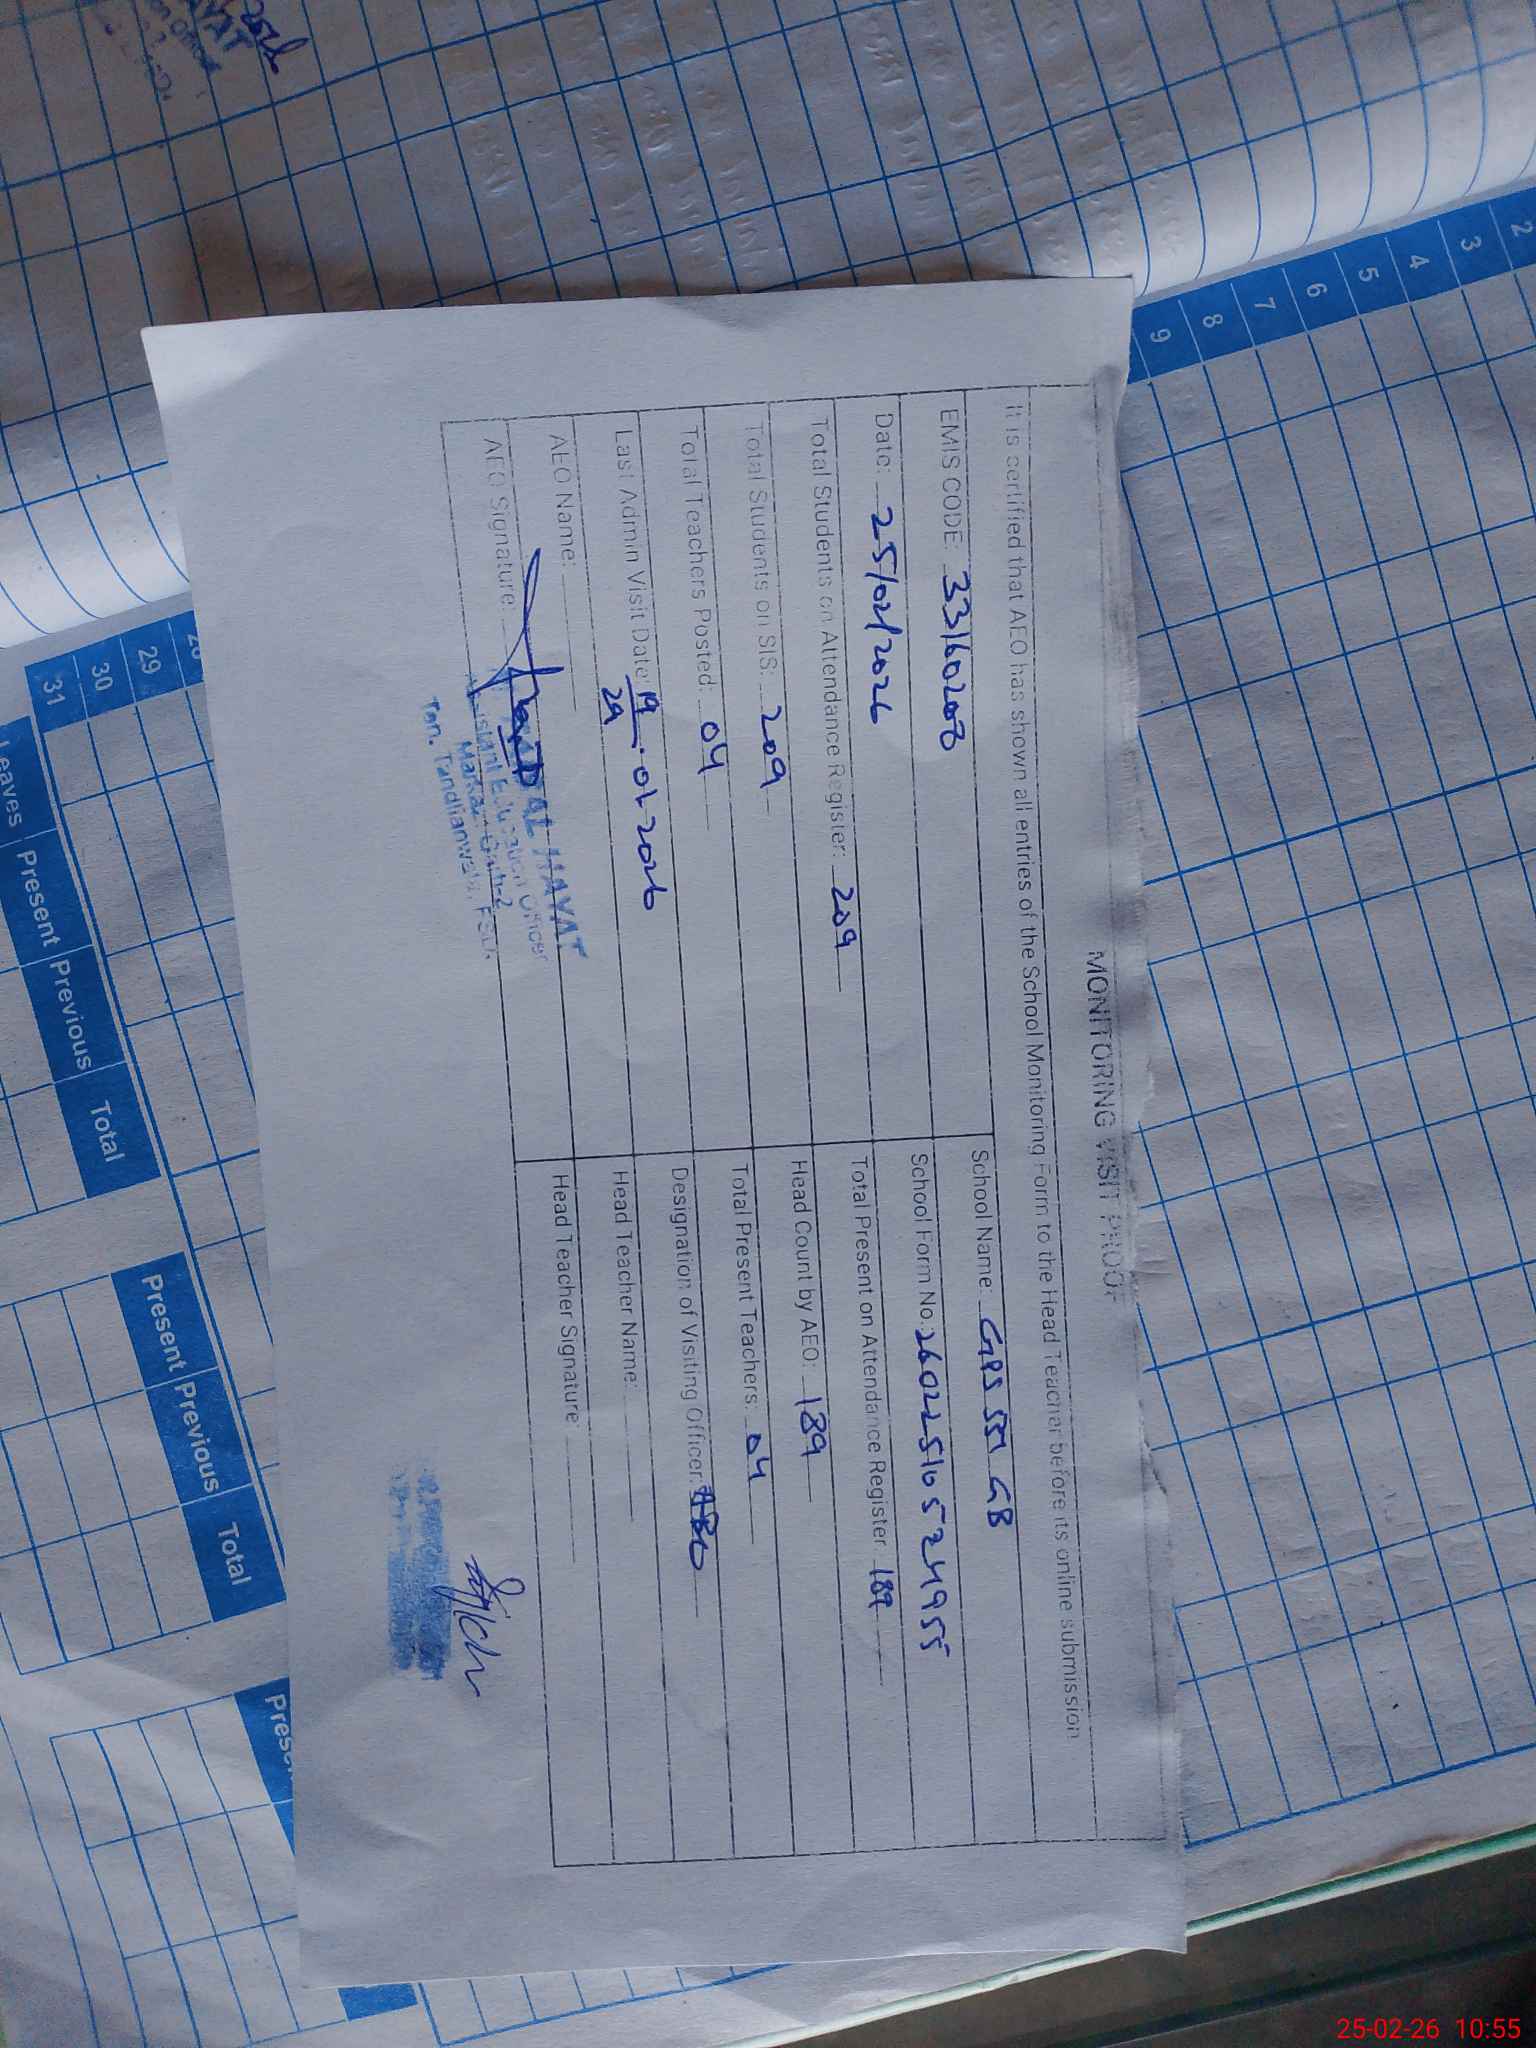 MONITORING VISIT PROOF
It is certified that AEO has shown all entries of the School Monitoring Form to the Head Teacher before its online submission
EMIS CODE: 33160208
School Name: GPS 551 GB
Date: 25/02/2026
School Form No.: 260225105524955
Total Students on Attendance Register: 209
Total Present on Attendance Register 189
Total Students on SIS: 209
Head Count by AEO: 189
Total Teachers Posted: 04
Total Present Teachers: 04
Last Admin Visit Date: 19 29 .01.2026
Designation of Visiting Officer:
AEO Name:
Head Teacher Name:
AEO Signature:
Head Teacher Signature:
HAYAT
Assistant Education Officer
Markaz
Teh. Tandlianwala, FSD.
2
3
4
5
6
7
8
9
29
30
31
Leaves Present Previous Total
Present Previous Total
25-02-26 10:55